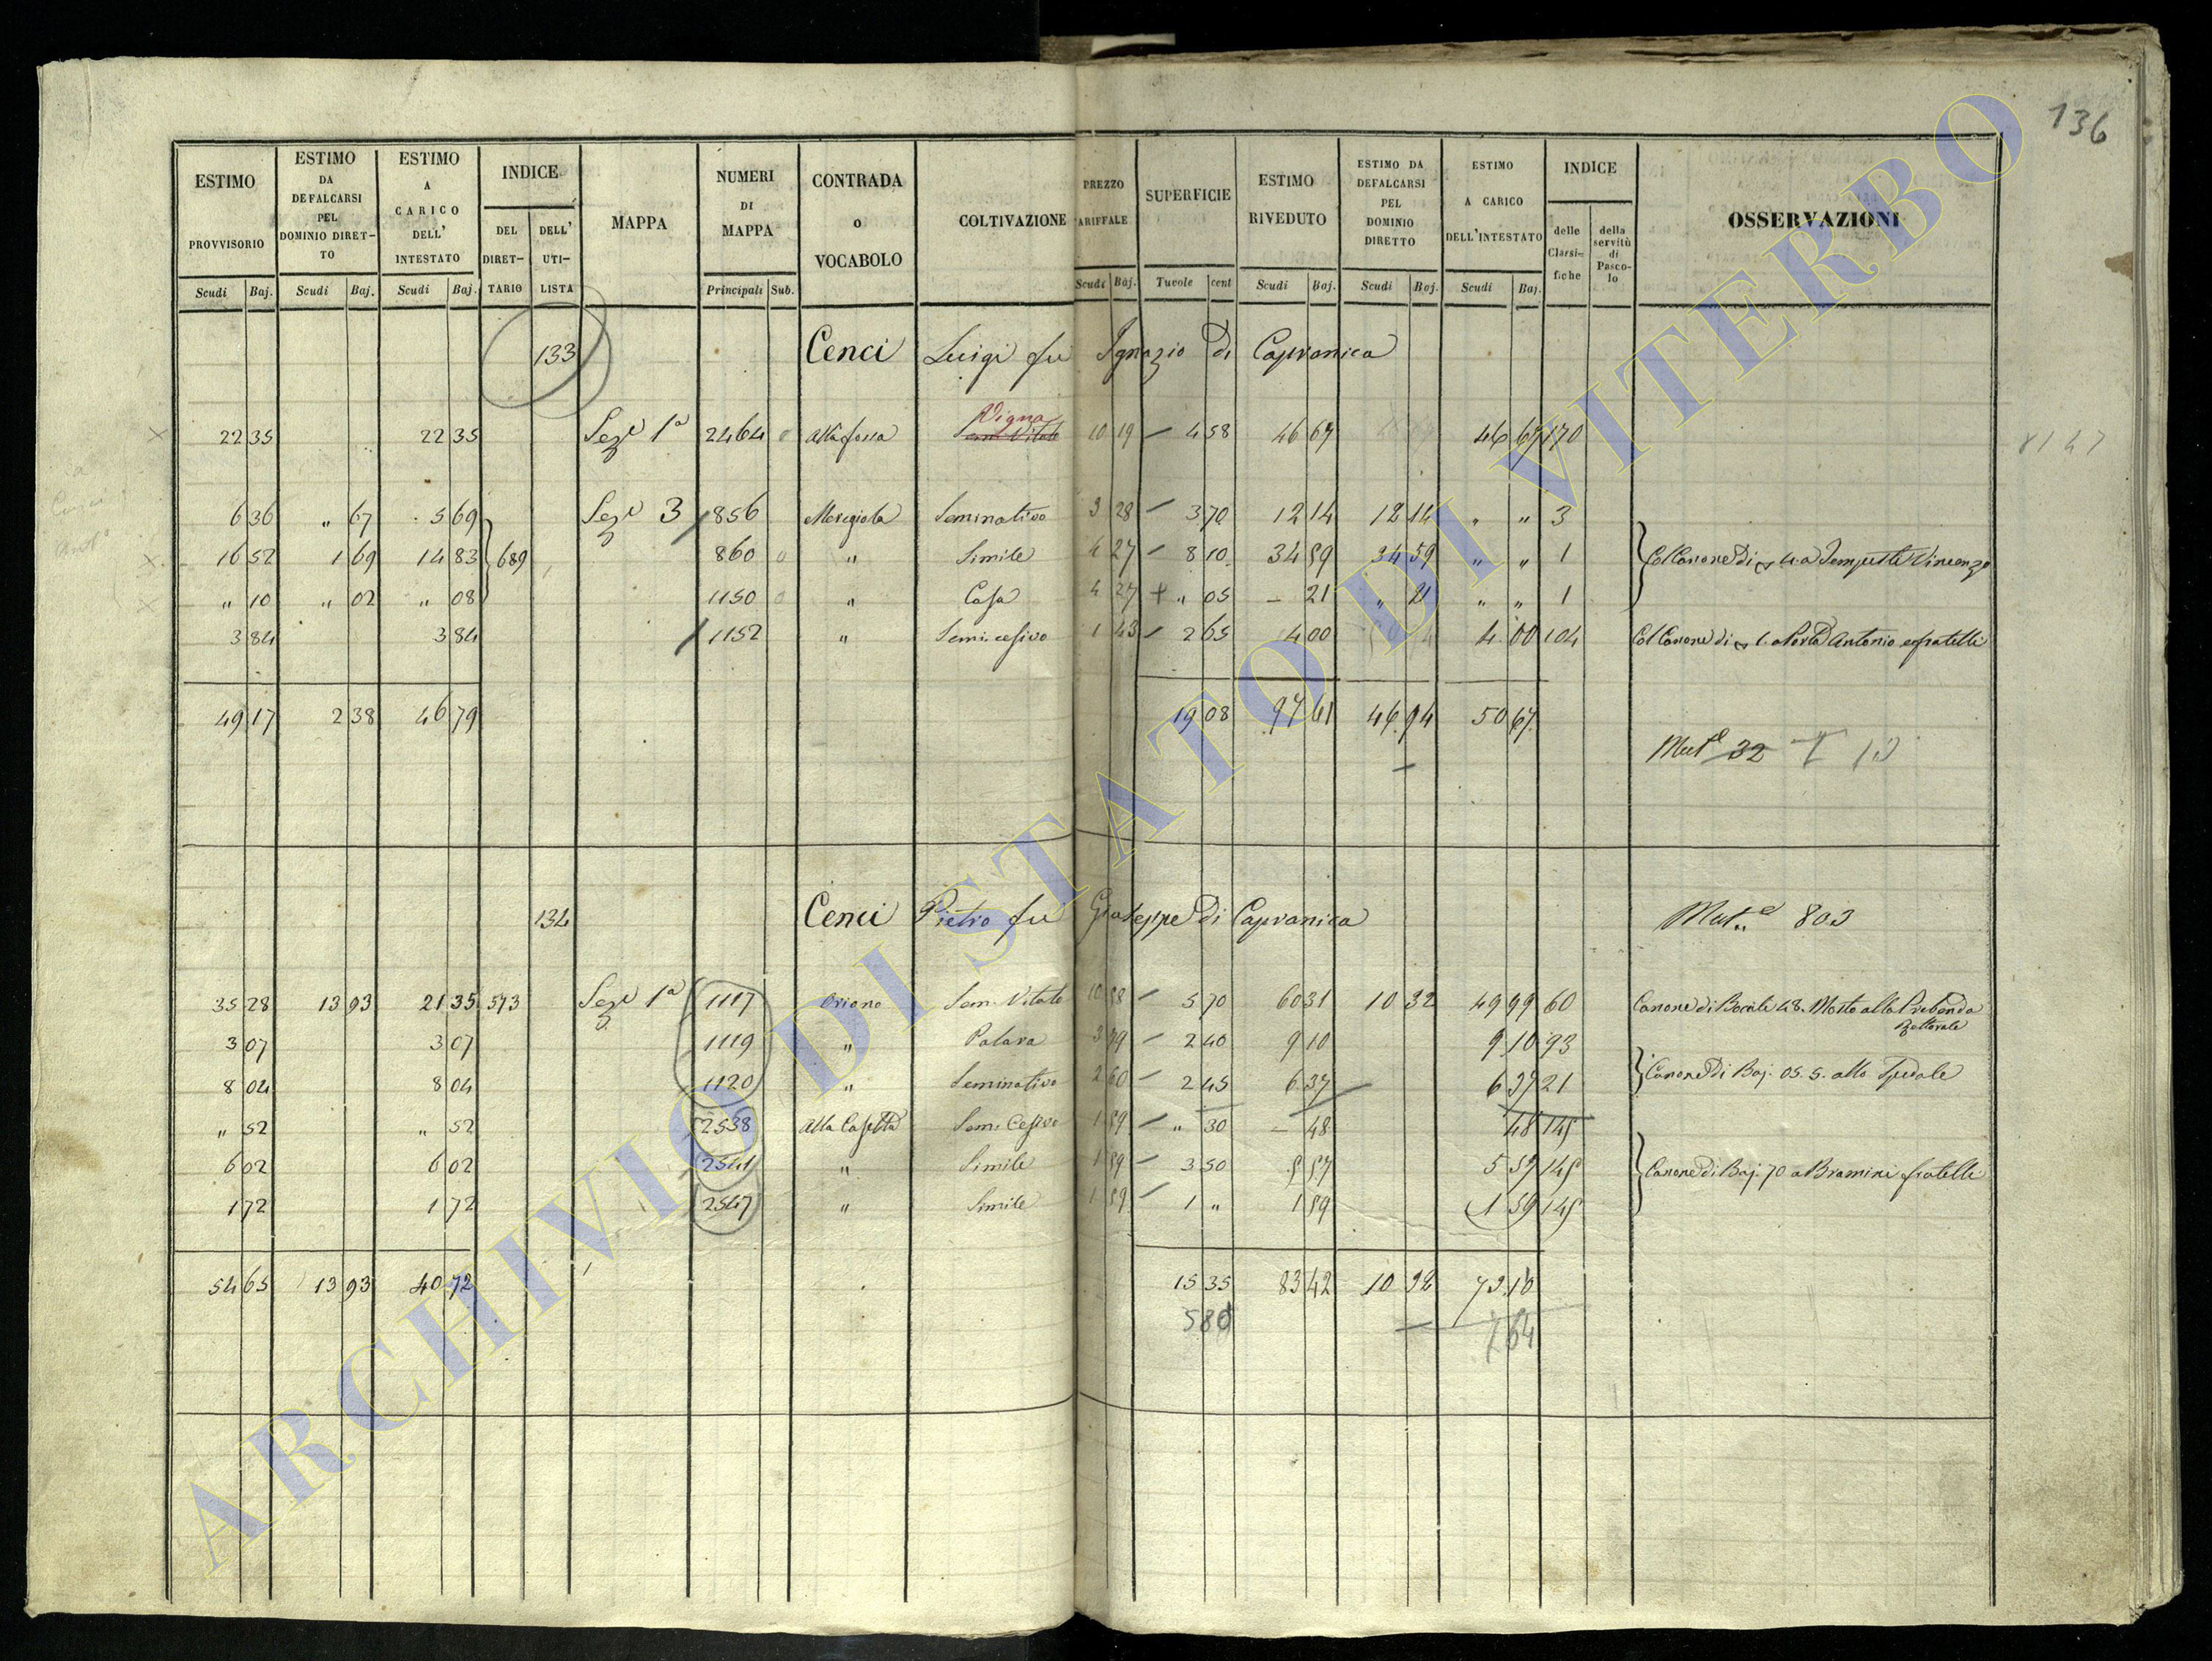 136
ESTIMO PROVVISORIO | ESTIMO DA DEFALCARSI PEL DOMINIO DIRETTO | ESTIMO A CARICO DELL' INTESTATO | INDICE | MAPPA | NUMERI DI MAPPA | CONTRADA o VOCABOLO | COLTIVAZIONE | PREZZO TARIFFALE | SUPERFICIE | ESTIMO RIVEDUTO | ESTIMO DA DEFALCARSI PEL DOMINIO DIRETTO | ESTIMO A CARICO DELL'INTESTATO | INDICE | OSSERVAZIONI
Scudi Baj. | Scudi Baj. | Scudi Baj. | DEL DIRETTARIO | DELL' UTILISTA | Principali Sub. | Scudi Baj. | Tavole cent | Scudi Baj. | Scudi Baj. | Scudi Baj. | delle Classifiche | della servitù di Pascolo
133 Cenci Luigi fu Ignazio di Capranica
Vigna
22 35 22 35 Sez.e 1a 2464 Alla fossa Sem. Vitato 10 19 4 58 46 67 46 67 170
6 36 " 67 5 69 Sez.e 3 856 Seminativo 3 28 3 70 12 14 12 14 " " 3
16 52 1 69 14 83 689 860 " Simile 4 27 8 10 34 59 34 59 " " 1 Col Canone di a Vincenzo
" 10 " 02 " 08 1150 " Casa 4 27 " 05 - 21 " 21 " " 1
3 84 3 84 1152 " Semi. cesivo 1 43 2 65 4 00 4 00 104 Col Canone di Antonio e fratelli
49 17 2 38 46 79 19 08 97 61 46 94 50 67
Mut.e 32
134 Cenci Pietro fu Giuseppe di Capranica Mut.e 803
35 28 13 93 21 35 573 Sez.e 1a 1117 Oriano Sem. Vitato 10 58 5 70 60 31 10 32 49 99 60 Canone di Bocali 48. Mosto alla Prebenda
Rettorale
3 07 3 07 1119 " 3 79 2 40 9 10 9 10 93
8 04 8 04 1120 " Seminativo 2 60 2 45 6 37 6 37 21 Canone di Baj. 05. 5. allo Spedale
" 52 " 52 2538 Alla Casetta Sem. Cesivo 1 59 " 30 - 48 48 145
6 02 6 02 2541 " Simile 1 59 3 50 5 57 5 57 145 Canone di Baj. 70 a Bramini fratelli
1 72 1 72 2547 " Simile 1 59 1 " 1 59 1 59 145
54 65 13 93 40 72 15 35 83 42 10 32 73 10
5 80 7 64
ARCHIVIO DI STATO DI VITERBO